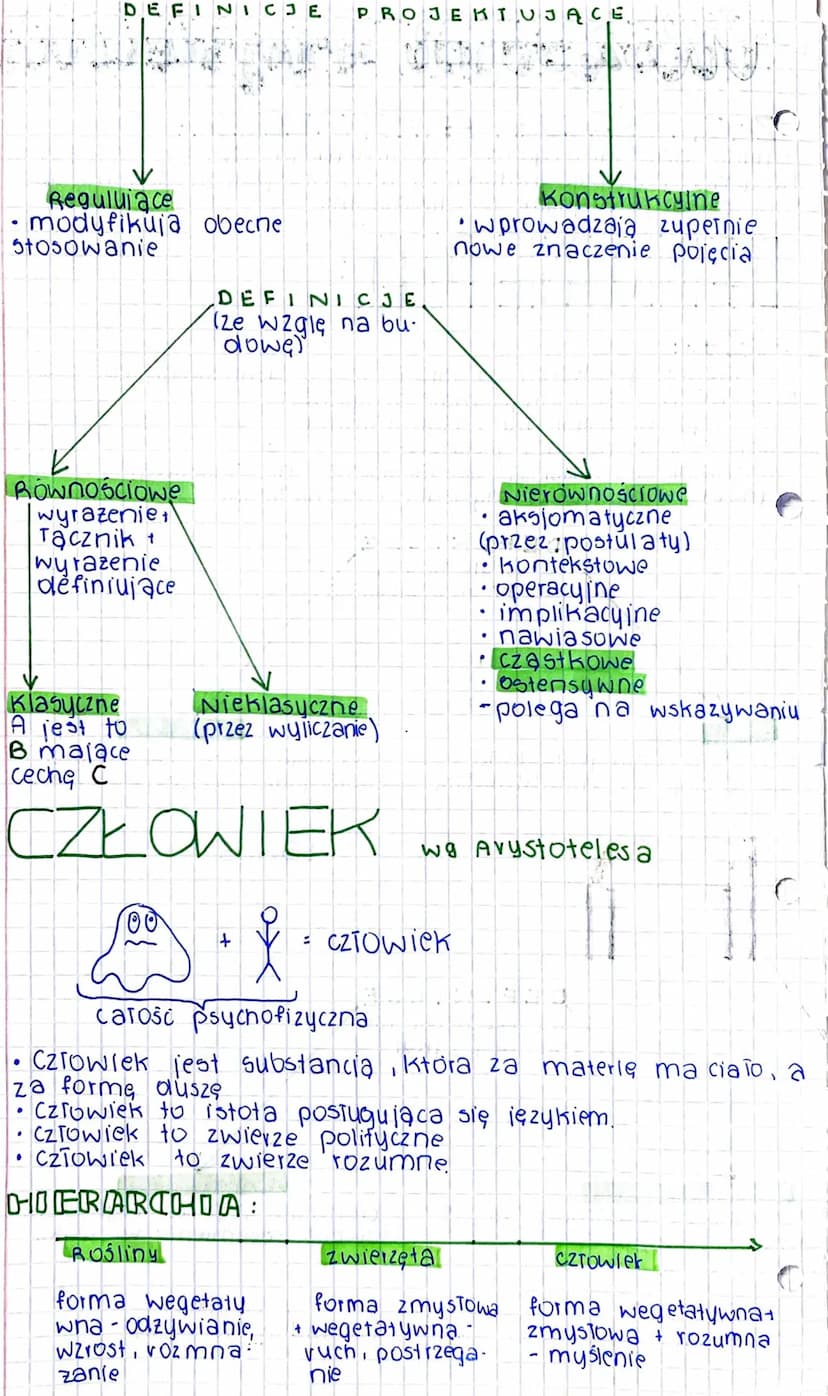 DEFINICJE PROJEKTUJĄCE
Regulujące
• modyfikują obecne
stosowanie
Konstrukcyjne
• wprowadzają zupełnie
nowe znaczenie pojęcia
DEFINICJE
(ze wzglę na bu-
dowę)
Równościowe
wyrażenie +
łącznik +
wyrażenie
definiujące
Nierównościowe
• aksjomatyczne
(przez postulaty)
• kontekstowe
• operacyjne
• implikacyjne
• nawiasowe
• cząstkowe
• ostensywne
- polega na wskazywaniu
Klasyczne
A jest to
B mające
cechę C
Nieklasyczne
(przez wyliczanie)
CZŁOWIEK wg Arystotelesa
+ = człowiek
całość psychofizyczna
• Człowiek jest substancją, która za materię ma ciało, a
za formę duszę
• Człowiek to istota posługująca się językiem.
• człowiek to zwierze polityczne
• człowiek to zwierze rozumne
HIERARCHIA:
Rośliny
zwierzęta
człowiek
forma wegetaty
wna - odżywianie,
wzrost, rozmna-
żanie
forma zmysłowa
+ wegetatywna -
ruch, postrzega-
nie
forma wegetatywna +
zmysłowa + rozumna
- myślenie